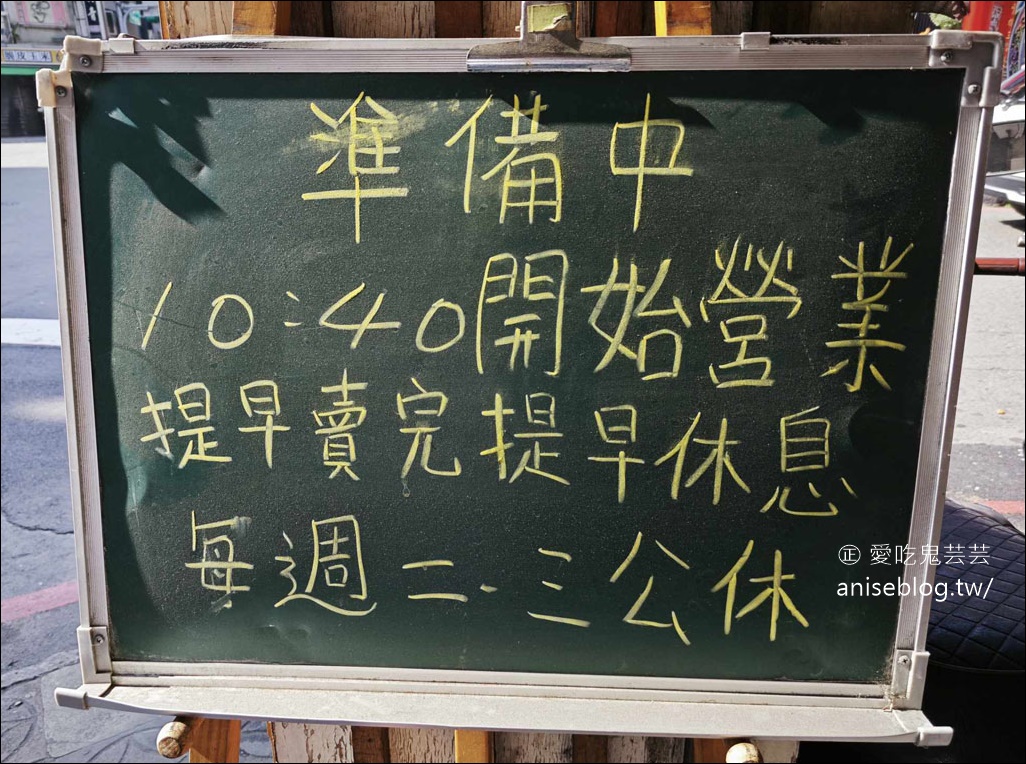 準備中
10:40開始營業
提早賣完提早休息
每週二.三公休
㊣ 愛吃鬼芸芸
aniseblog.tw/